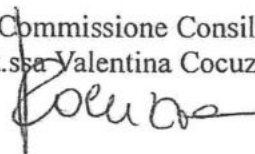 Commissione Consil
.ssa Valentina Cocuz